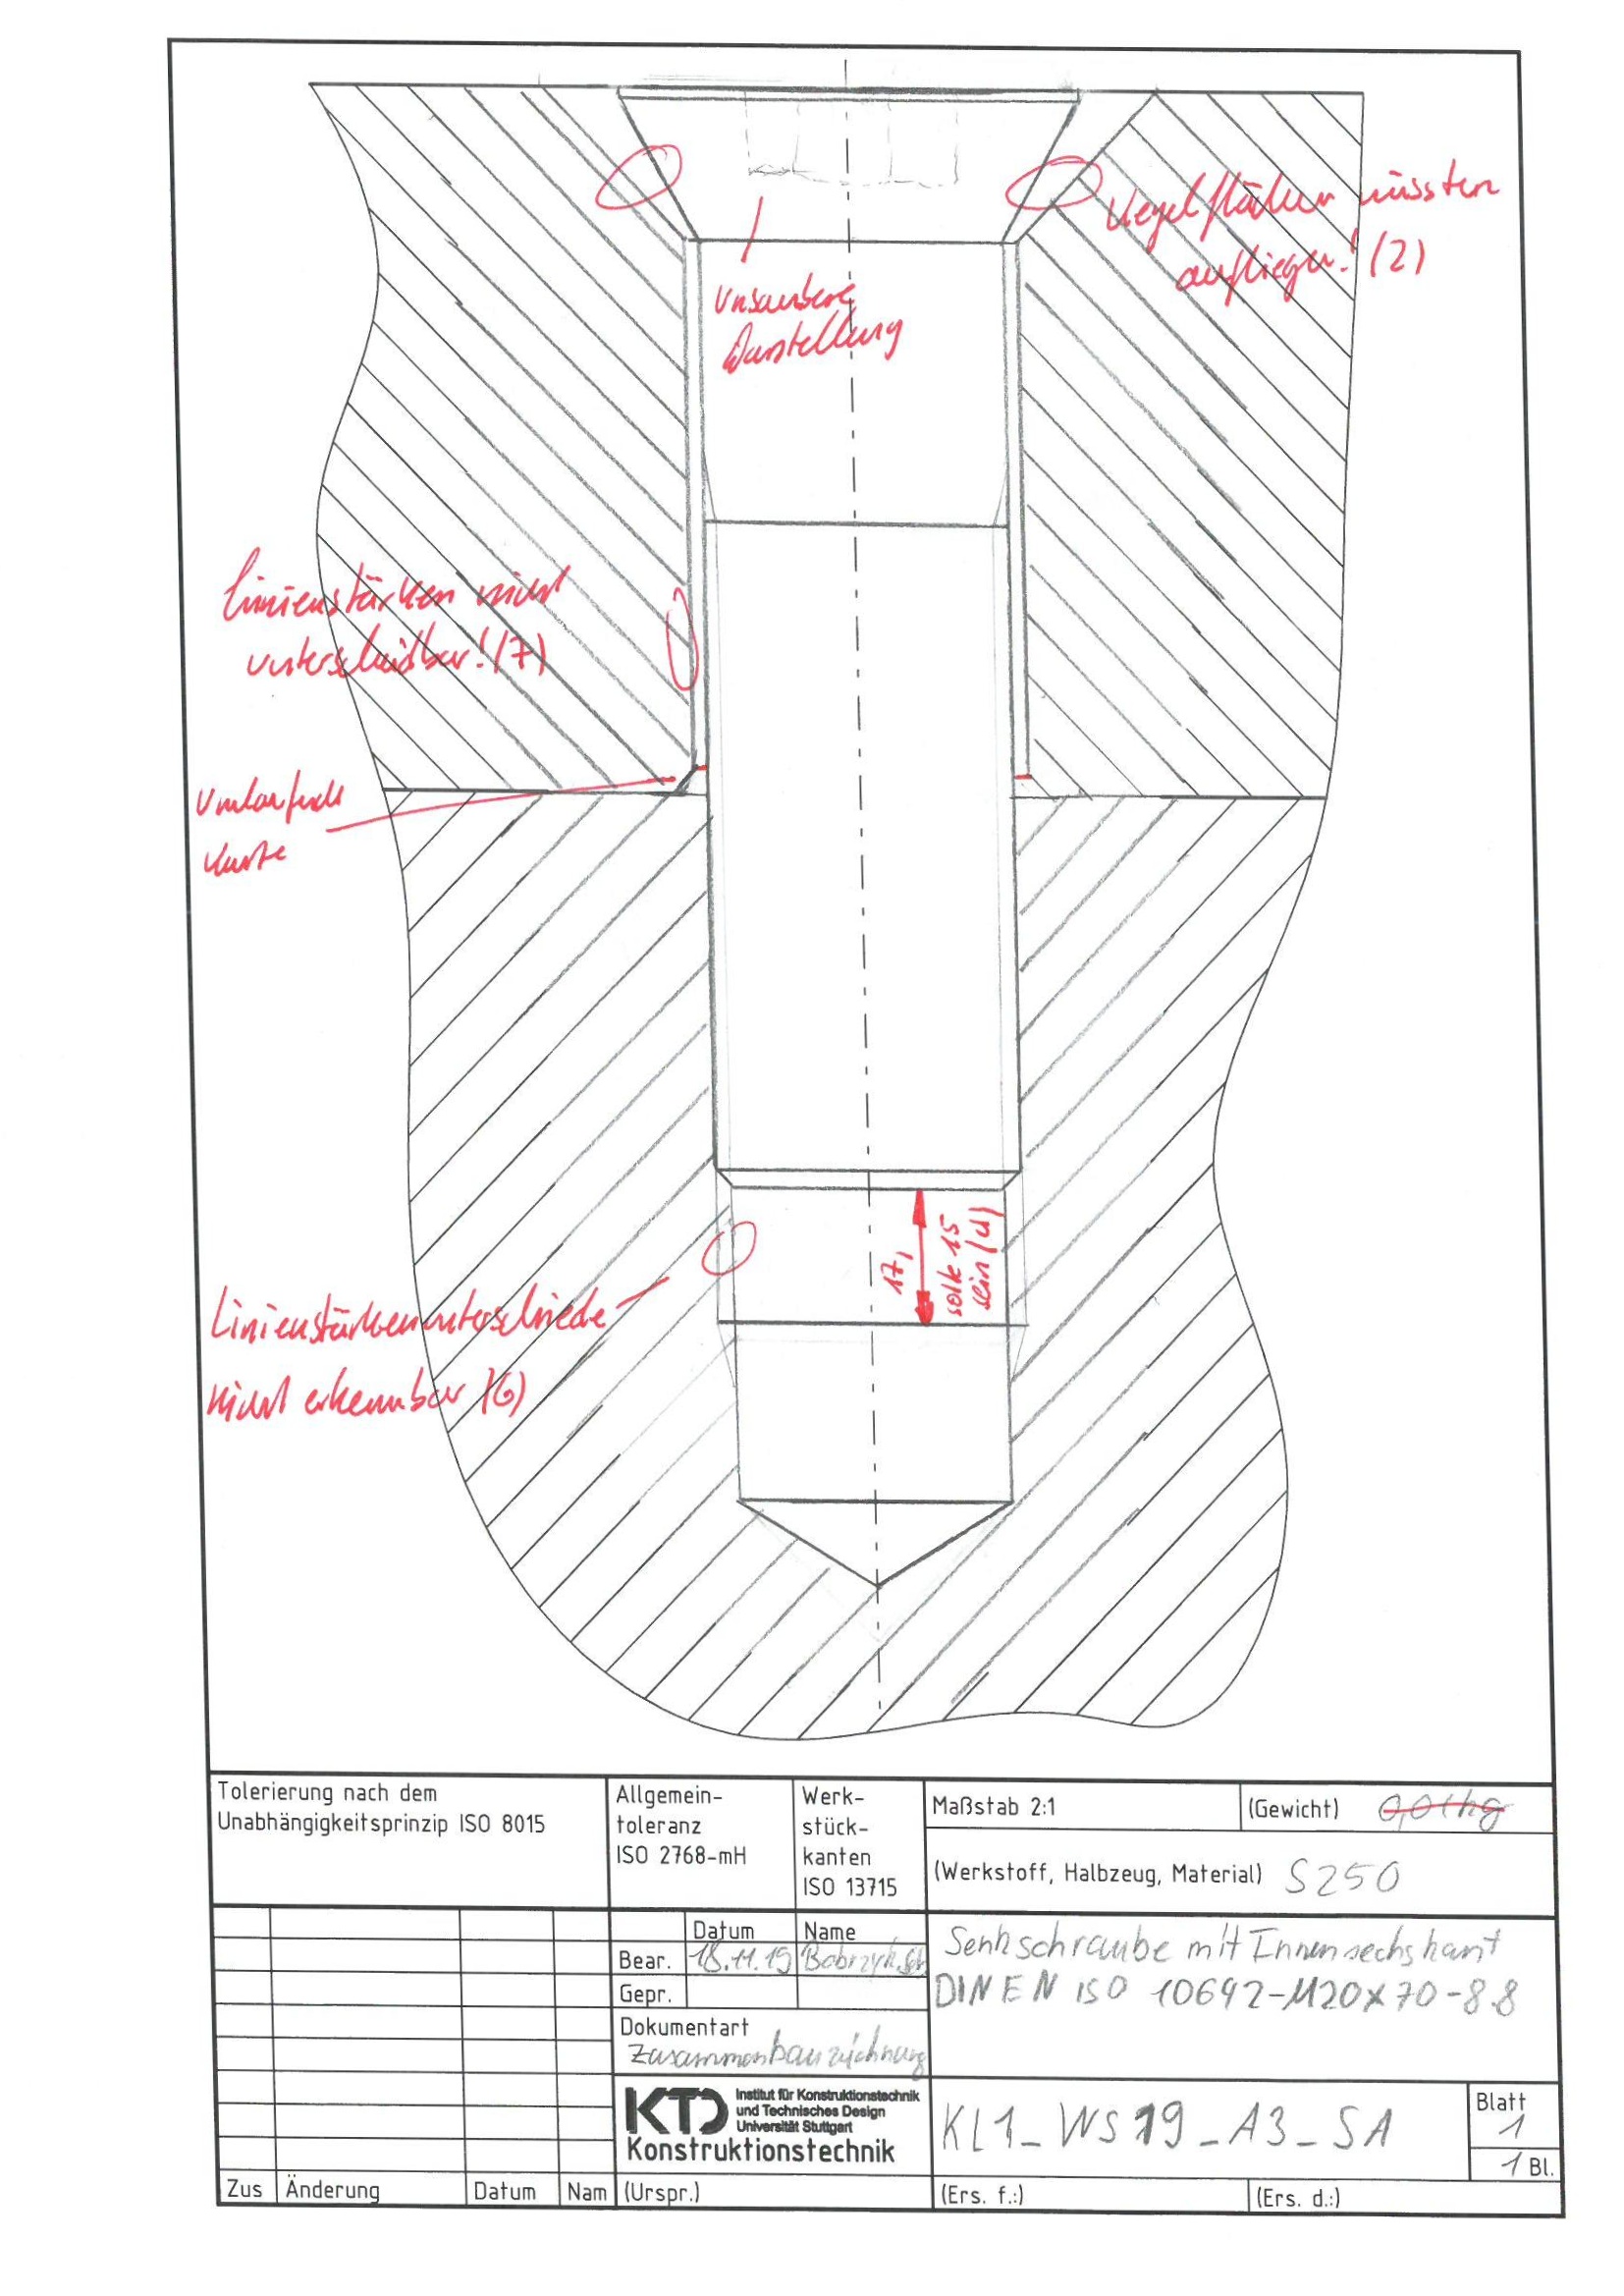 Kegelflächen müssten
aufliegen! (2)
unsaubere
Darstellung
Linienstärken nicht
unterscheidbar! (7)
Umlaufende
Kante
17,
sollte 15
sein (4)
Linienstärkenunterschiede
nicht erkennbar (6)
Tolerierung nach dem
Unabhängigkeitsprinzip ISO 8015
Allgemein-
toleranz
ISO 2768-mH
Werk-
stück-
kanten
ISO 13715
Maßstab 2:1
(Gewicht) 0,01kg
(Werkstoff, Halbzeug, Material) S250
Datum Name
Bear. 18.11.19
Gepr.
Senkschraube mit Innensechskant
DIN EN ISO 10642-M20x70-8.8
Dokumentart
Zusammenbauzeichnung
KTD Institut für Konstruktionstechnik
und Technisches Design
Universität Stuttgart
Konstruktionstechnik
KL1_WS19_A3_SA
Blatt
1
1 Bl.
Zus Änderung Datum Nam (Urspr.) (Ers. f.:) (Ers. d.:)